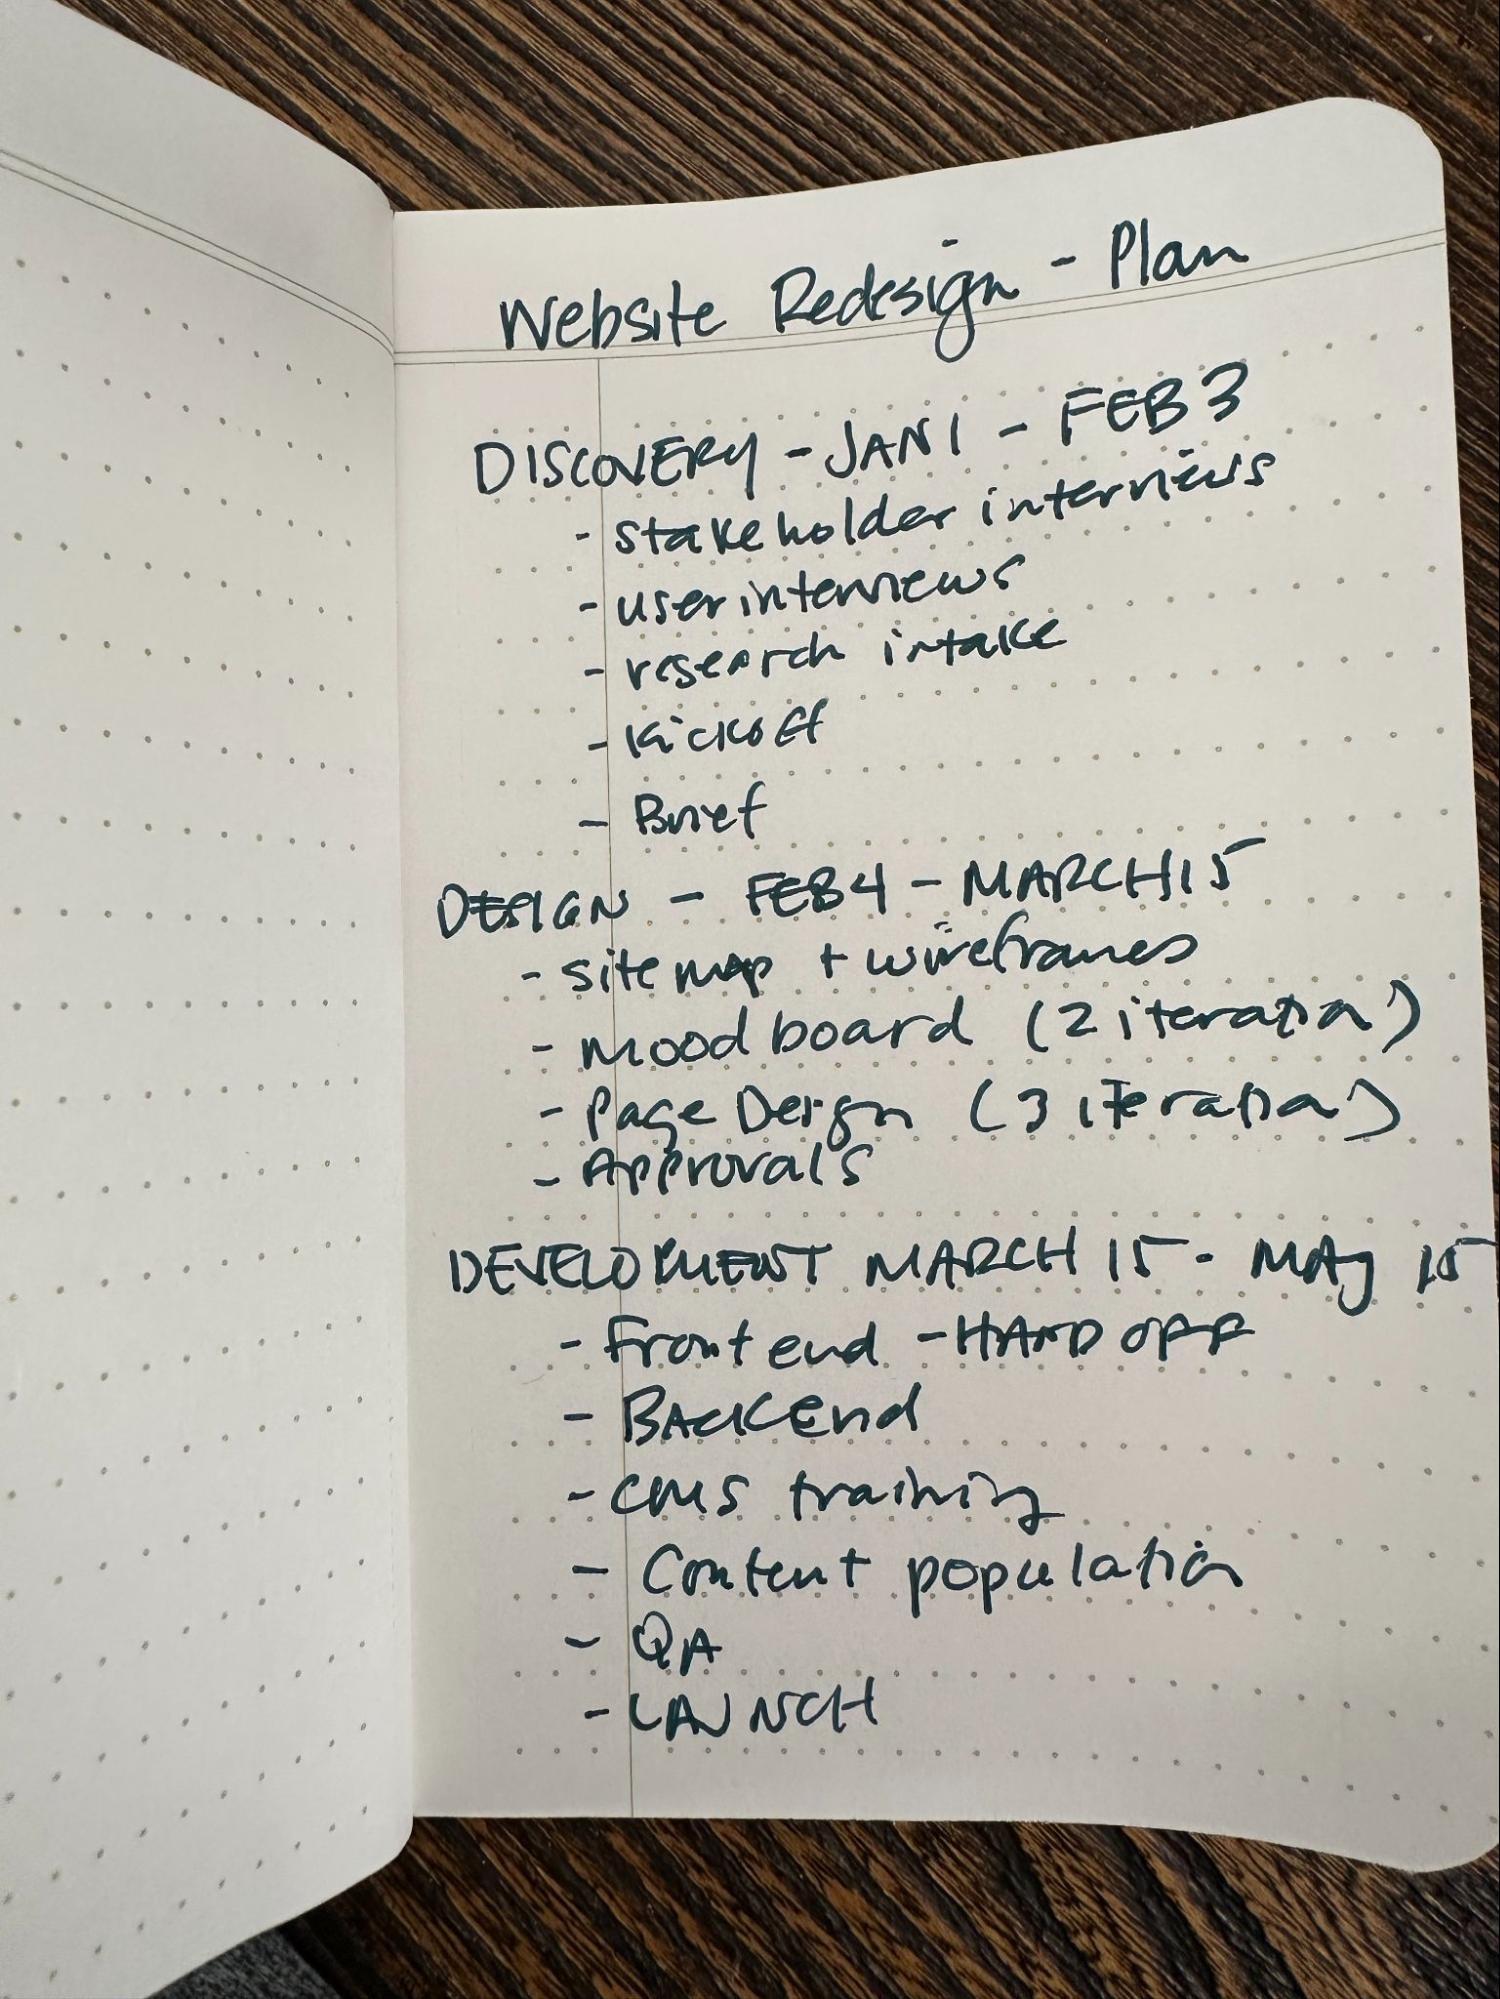 Website Redesign - Plan
DISCOVERY - JAN 1 - FEB 3
- stakeholder interviews
- user interviews
- research intake
- Kickoff
- Brief
DESIGN - FEB 4 - MARCH 15
- sitemap + wireframes
- Moodboard (2 iteration)
- Page Design (3 iteration)
- Approvals
DEVELOPMENT MARCH 15 - MAY 15
- Frontend - HAND OFF
- BACKEnd
- CMS training
- Content population
- QA
- LAUNCH